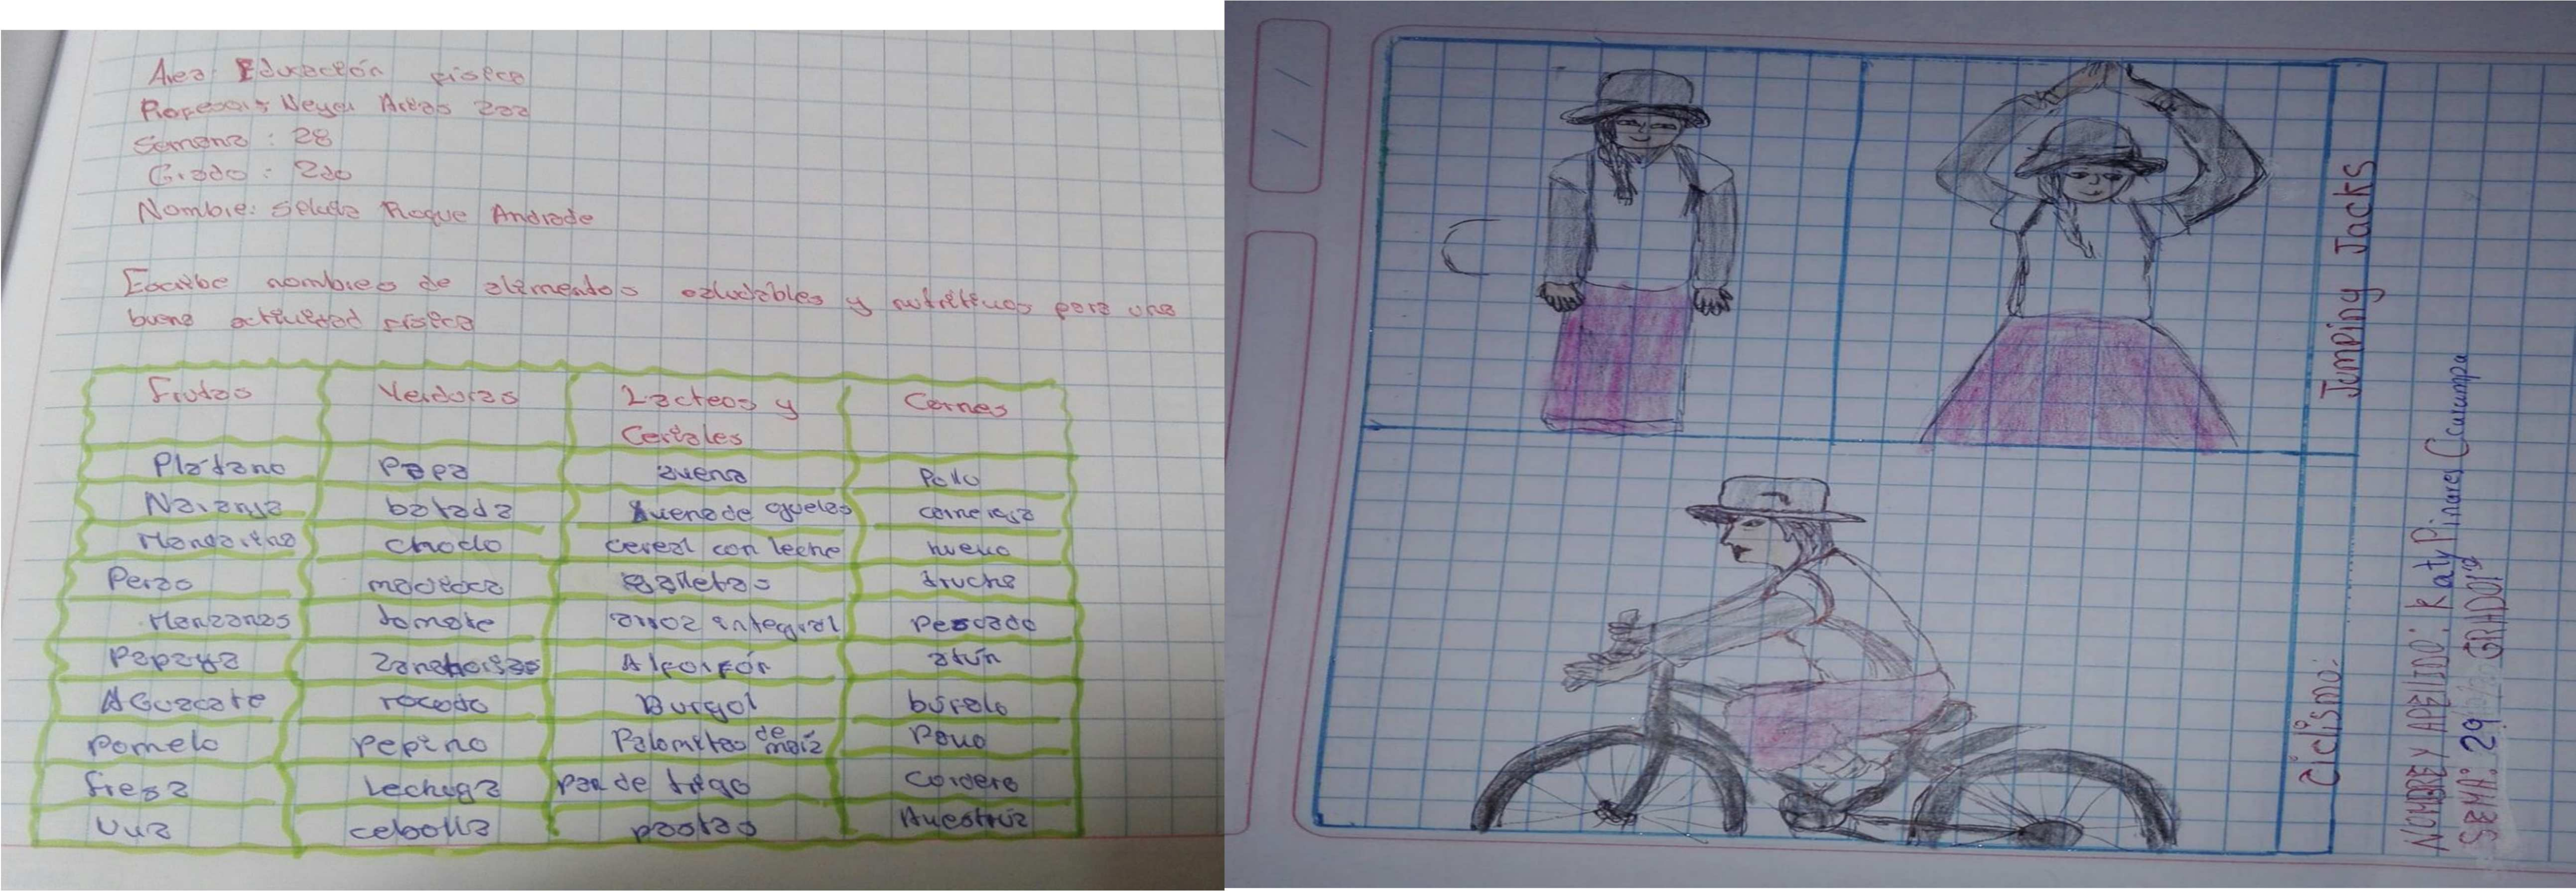 Area: Educación física
Semana: 28
Grado: 2do
Nombre: Roque Andrade
Escribe nombres de alimentos saludables y nutritivos para una
buena actividad física
Frutas Verduras Lacteos y Cereales Carnes
Plátano Papa avena Pollo
Naranja batada avena de ojuelas carne resa
Mandarina choclo cereal con leche huevo
Peras galletas trucha
Manzanas tomate arroz integral pescado
Papaya Zanahorias Alforfór atún
AGuacate rocodo Burgol búfalo
Pomelo Pepino Palomitas de maíz Pavo
fresa Lechuga pan de trigo Cordero
Uva cebolla pastas Avestrúz
Jumping Jacks
Ciclismo:
NOMBRE Y APELLIDO: Katy Pinares Ccurumpa
SEMA: 29 GRADO 1º